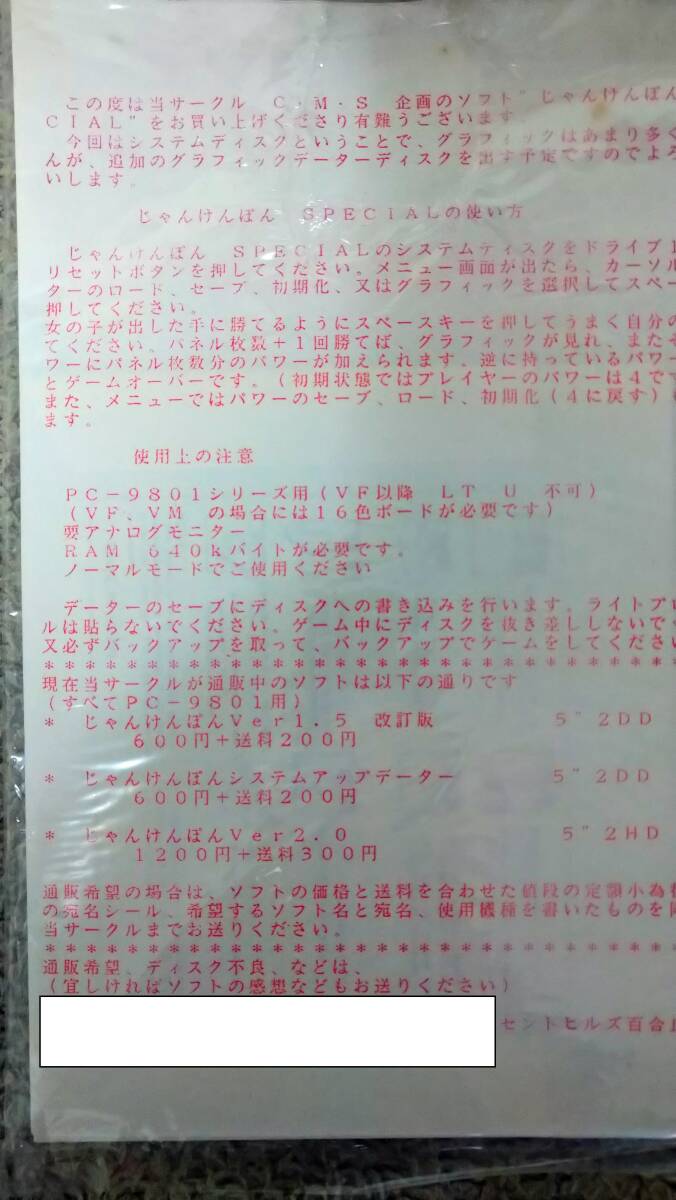 この度は当サークル C・M・S 企画のソフト"じゃんけんぽん
CIAL"をお買い上げくださり有難うございます
今回はシステムディスクということで、グラフィックはあまり多く
んが、追加のグラフィックデーターディスクを出す予定ですのでよろ
いします。
じゃんけんぽん SPECIALの使い方
じゃんけんぽん SPECIALのシステムディスクをドライブ1
リセットボタンを押してください。メニュー画面が出たら、カーソル
ターのロード、セーブ、初期化、又はグラフィックを選択してスペー
押してください。
女の子が出した手に勝てるようにスペースキーを押してうまく自分の
てください。パネル枚数+1回勝てば、グラフィックが見れ、またそ
ワーにパネル枚数分のパワーが加えられます。逆に持っているパワー
とゲームオーバーです。(初期状態ではプレイヤーのパワーは4です
また、メニューではパワーのセーブ、ロード、初期化(4に戻す)
ます。
使用上の注意
PC-9801シリーズ用(VF以降 LT U 不可)
(VF、VM の場合には16色ボードが必要です)
要アナログモニター
RAM 640kバイトが必要です。
ノーマルモードでご使用ください
データーのセーブにディスクへの書き込みを行います。ライトプロ
ルは貼らないでください。ゲーム中にディスクを抜き差ししないで
又必ずバックアップを取って、バックアップでゲームをしてください
*********************************
現在当サークルが通販中のソフトは以下の通りです
(すべてPC-9801用)
* じゃんけんぽんVer1.5 改訂版 5"2DD
600円+送料200円
* じゃんけんぽんシステムアップデーター 5"2DD
600円+送料200円
* じゃんけんぽんVer2.0 5"2HD
1200円+送料300円
通販希望の場合は、ソフトの価格と送料を合わせた値段の定額小為替
の宛名シール、希望するソフト名と宛名、使用機種を書いたものを同
当サークルまでお送りください。
*********************************
通販希望、ディスク不良、などは、
(宜しければソフトの感想などもお送りください)
セントヒルズ百合